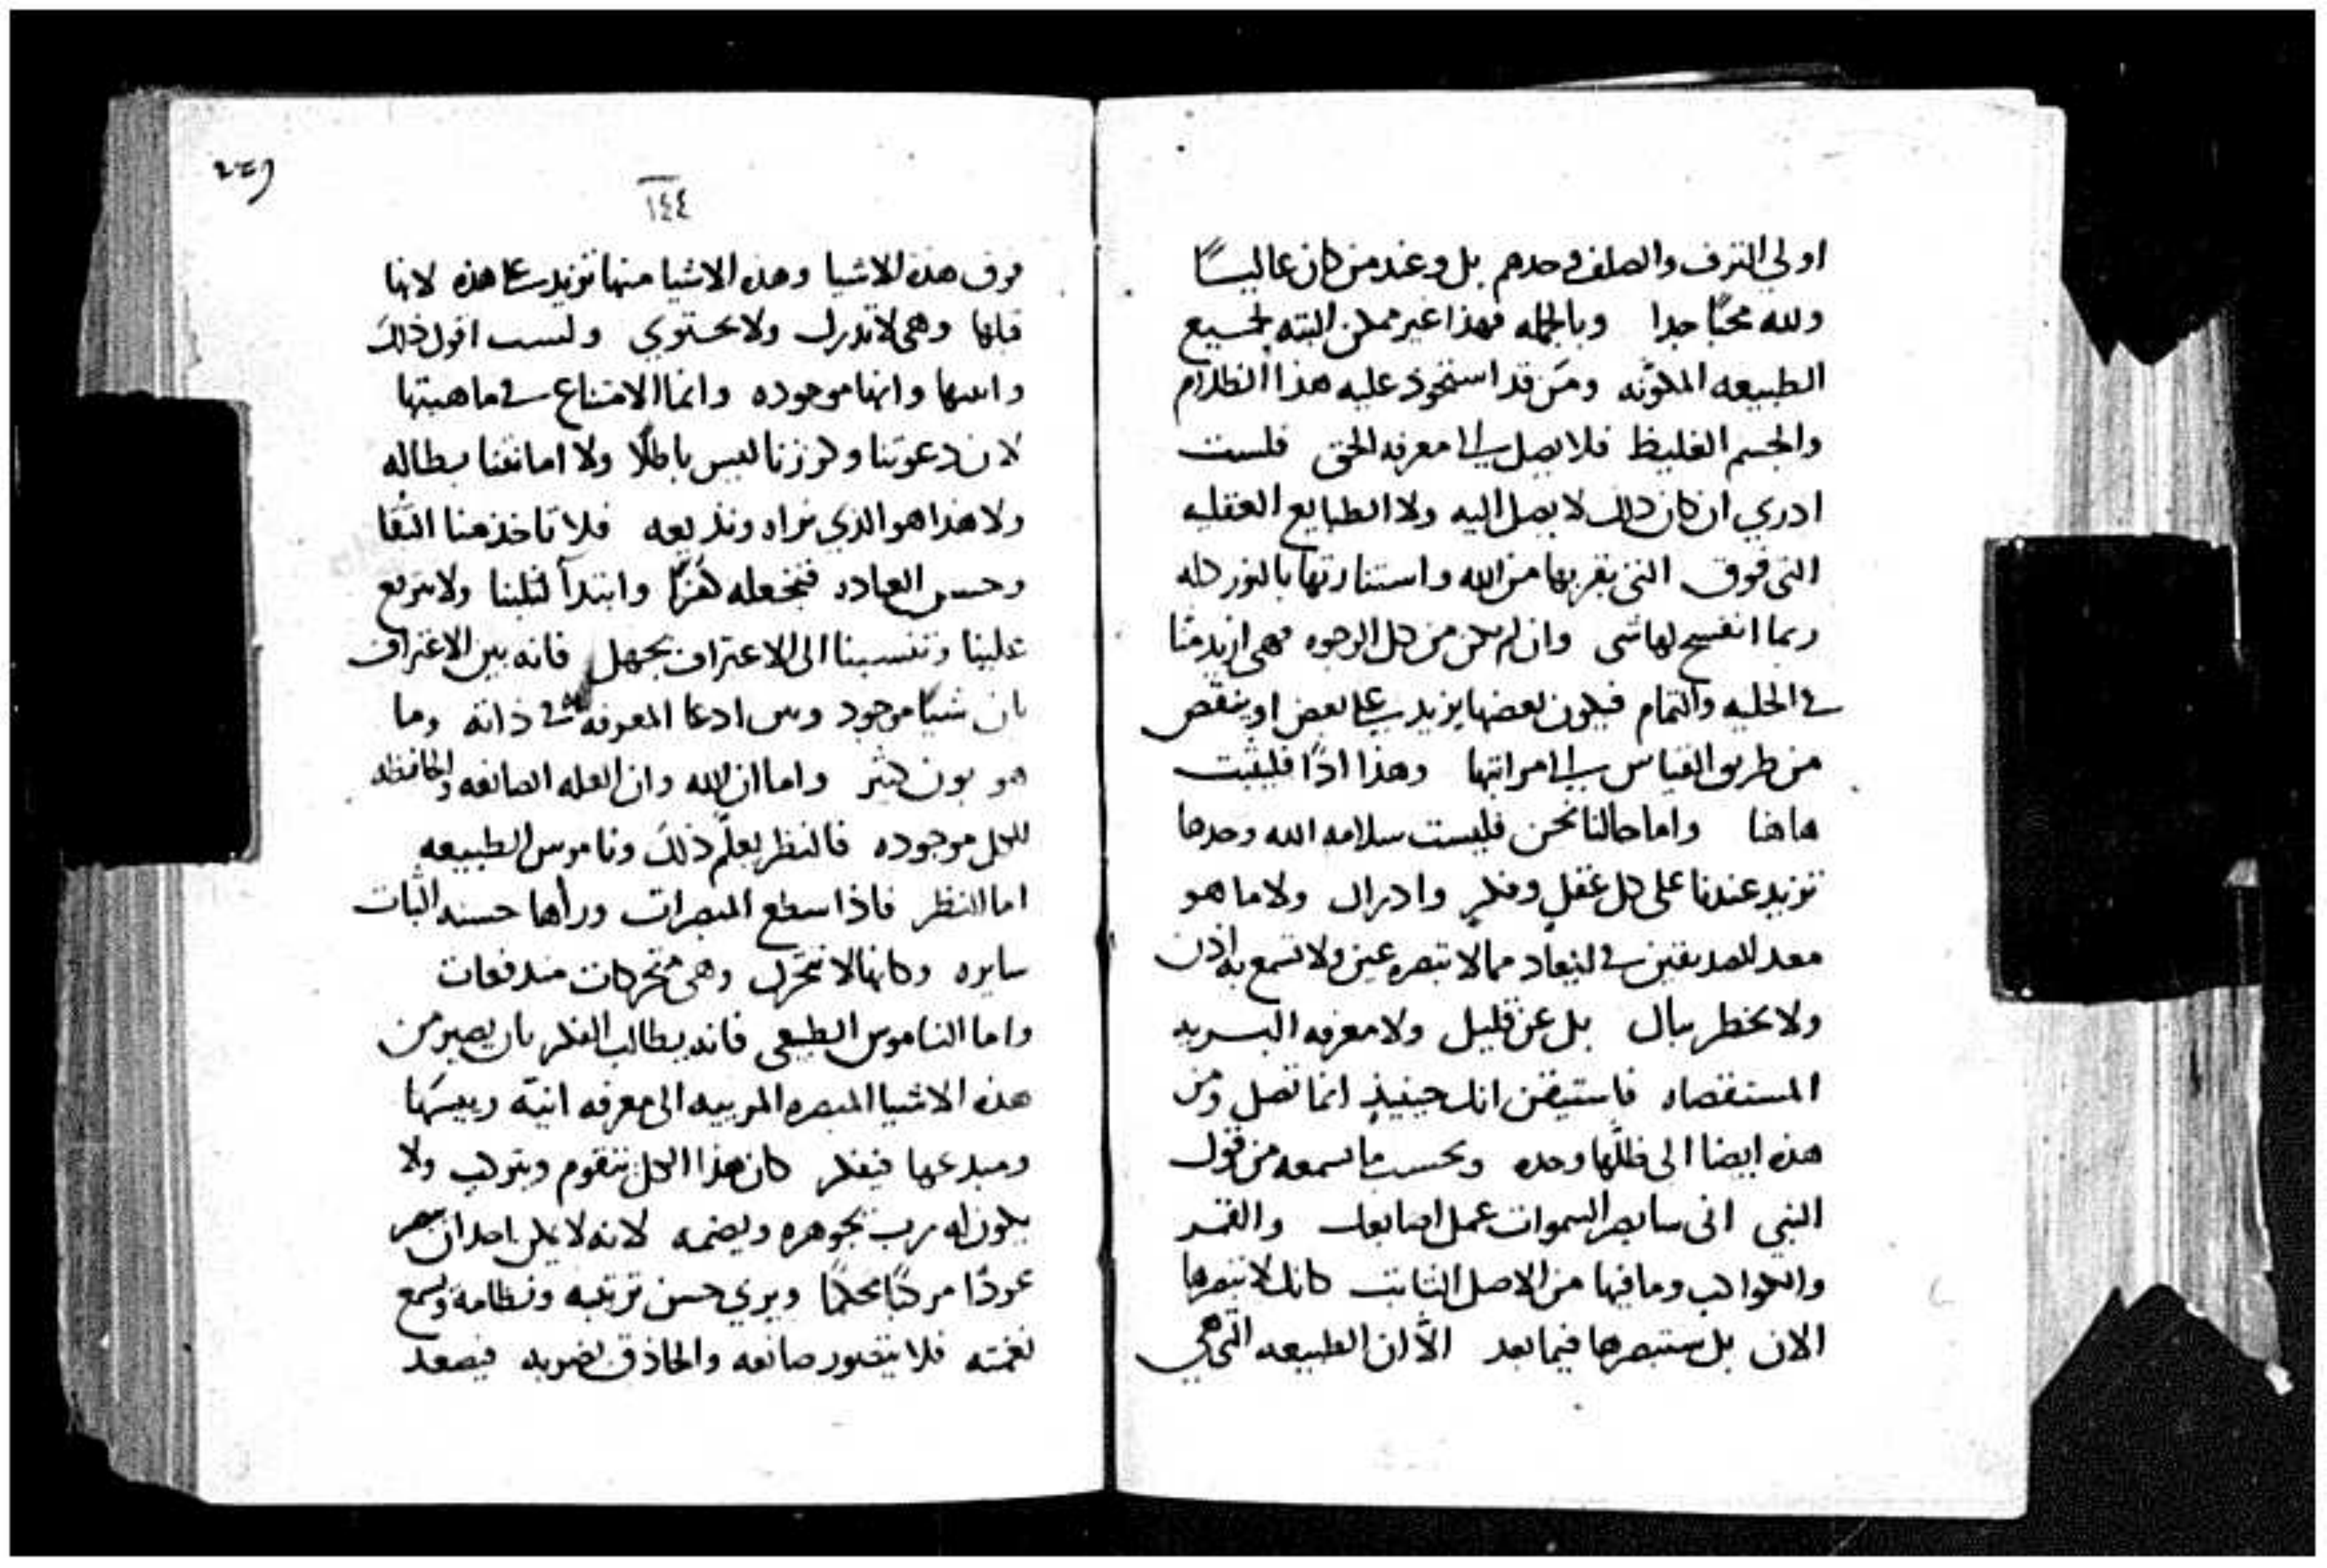 اولي الترف والصلف وحدهم بل وعند من كان عاليًا
ولله محبًا جدا وبالجمله فهذا غير ممكن البته لجميع
الطبيعه المكوّنه ومَن قد استحوذ عليه هذا الظلام
والجسم الغليظ فلا يصل الى معرفه الحق فلست
ادري ان كان ذلك لا يصل اليه ولا الطبايع العقليه
التى فوق التى بقربها من الله واستنارتها بالنور كله
ربما اتضح لها شى وان لم يكن من كل الوجوه فهى ازيد منا
في الحليه والتمام فيكون بعضها يزيد على بعض او ينقص
من طريق القياس الى مراتبها وهذا اذًا فليثبت
هاهنا واما حالنا نحن فليست سلامه الله وحدها
تزيد عندنا على كل عقلٍ وفكرٍ وادراك ولا ما هو
معد للصديقين في الميعاد مما لا تبصره عين ولا تسمع به اذن
ولا يخطر ببال بل عن قليل ولا معرفه البريه
المستقصاه فاستيقن انك حينيذٍ انما تصل ومن
هذه ايضا الى ظلّها وحده وبحسب ما تسمعه من قول
النبي انى سابصر السموات عمل اصابعك والقمر
والكواكب وما فيها من الاصل الثابت كانك لا تبصرها
الان بل ستبصرها فيما بعد الّا ان الطبيعه التى هي
٢٤٩
١٤٤
فوق هذه الاشيا وهذه الاشيا منها تزيد على هذه لانها
قبلها وهى لا تدرك ولا تحتوي ولست اقول ذلك
وانها موجوده وانما الامتناع في ماهيتها
لان دعوتنا وكرزنا ليس باطلًا ولا امانتنا بطاله
ولا هذا هو الذي نراه ونذيعه فلا تاخذ منا النقا
وحسن العباده فتجعله هُزءًا وابتدآ لثلبنا ولا تترفع
علينا وتنسبنا الى الاعتراف بجهل فانه بين الاعتراف
بان شيًا موجود وبين ادعا المعرفه في ذاته وما
هو بون كثير واما ان الله وان العله الصانعه والحافظه
للكل موجوده فالنظر يعلّم ذلك وناموس الطبيعه
اما النظر فاذا سطع المبصرات وراها حسنه الثبات
سايره وكانها لا تتحرّك وهى متحركات مندفعات
واما الناموس الطبيعى فانه يطالب الفكر بان يصير من
هذه الاشيا المبصره المرتبه الى معرفه انيّه رييسها
ومبدعها فيفكر كان هذا الكل يتقوم ويتركب ولا
يكون له رب يجوهره ويضمه لانه لا يمكن احدان يبصر
عودًا مركبًا محكمًا ويرى حسن تركيبه ونظامه ويسمع
نغمته فلا يتصور صانعه والحاذق بضربه فيصعد